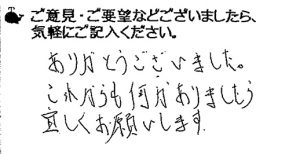 ご意見・ご要望などございましたら、
気軽にご記入ください。
ありがとうございました。
これからも何かありましたら
宜しくお願いします